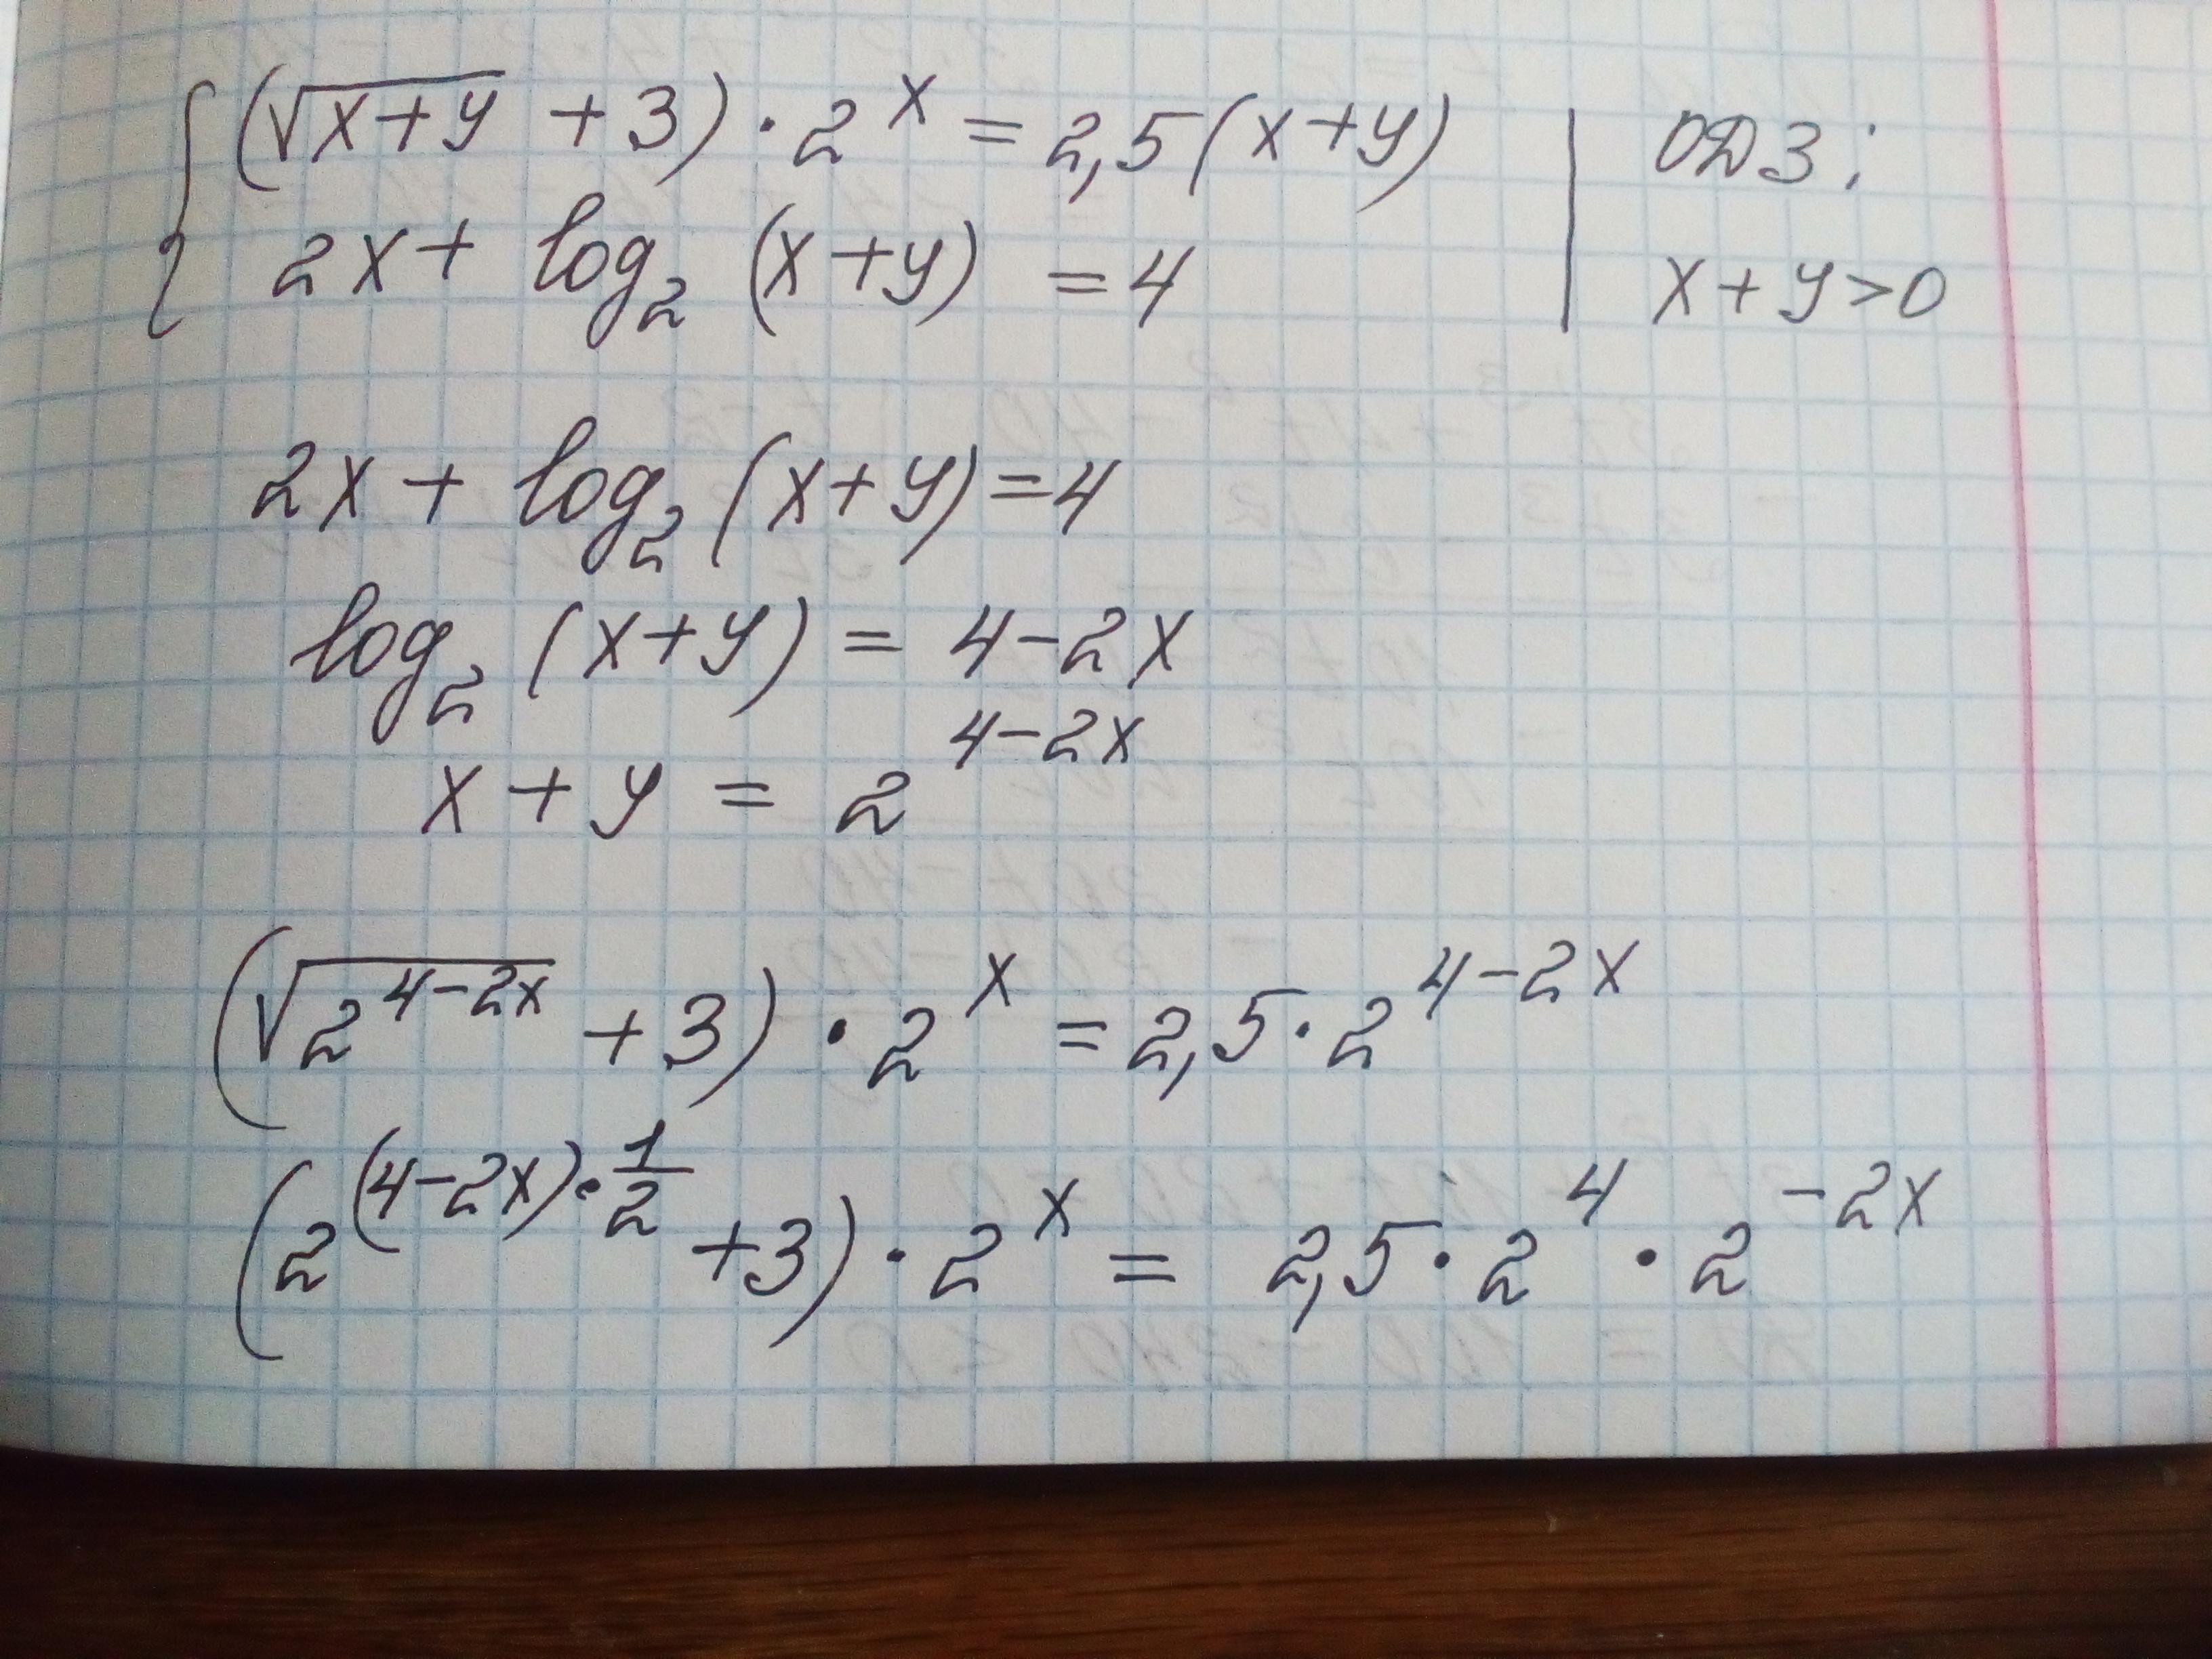 { (√x+y + 3) · 2^x = 2,5(x+y) | ОДЗ:
2x + log₂ (x+y) = 4 | x+y>0
2x + log₂ (x+y) = 4
log₂ (x+y) = 4-2x
x + y = 2^(4-2x)
(√2^(4-2x) + 3) · 2^x = 2,5 · 2^(4-2x)
(2^((4-2x)·1/2) + 3) · 2^x = 2,5 · 2^4 · 2^(-2x)